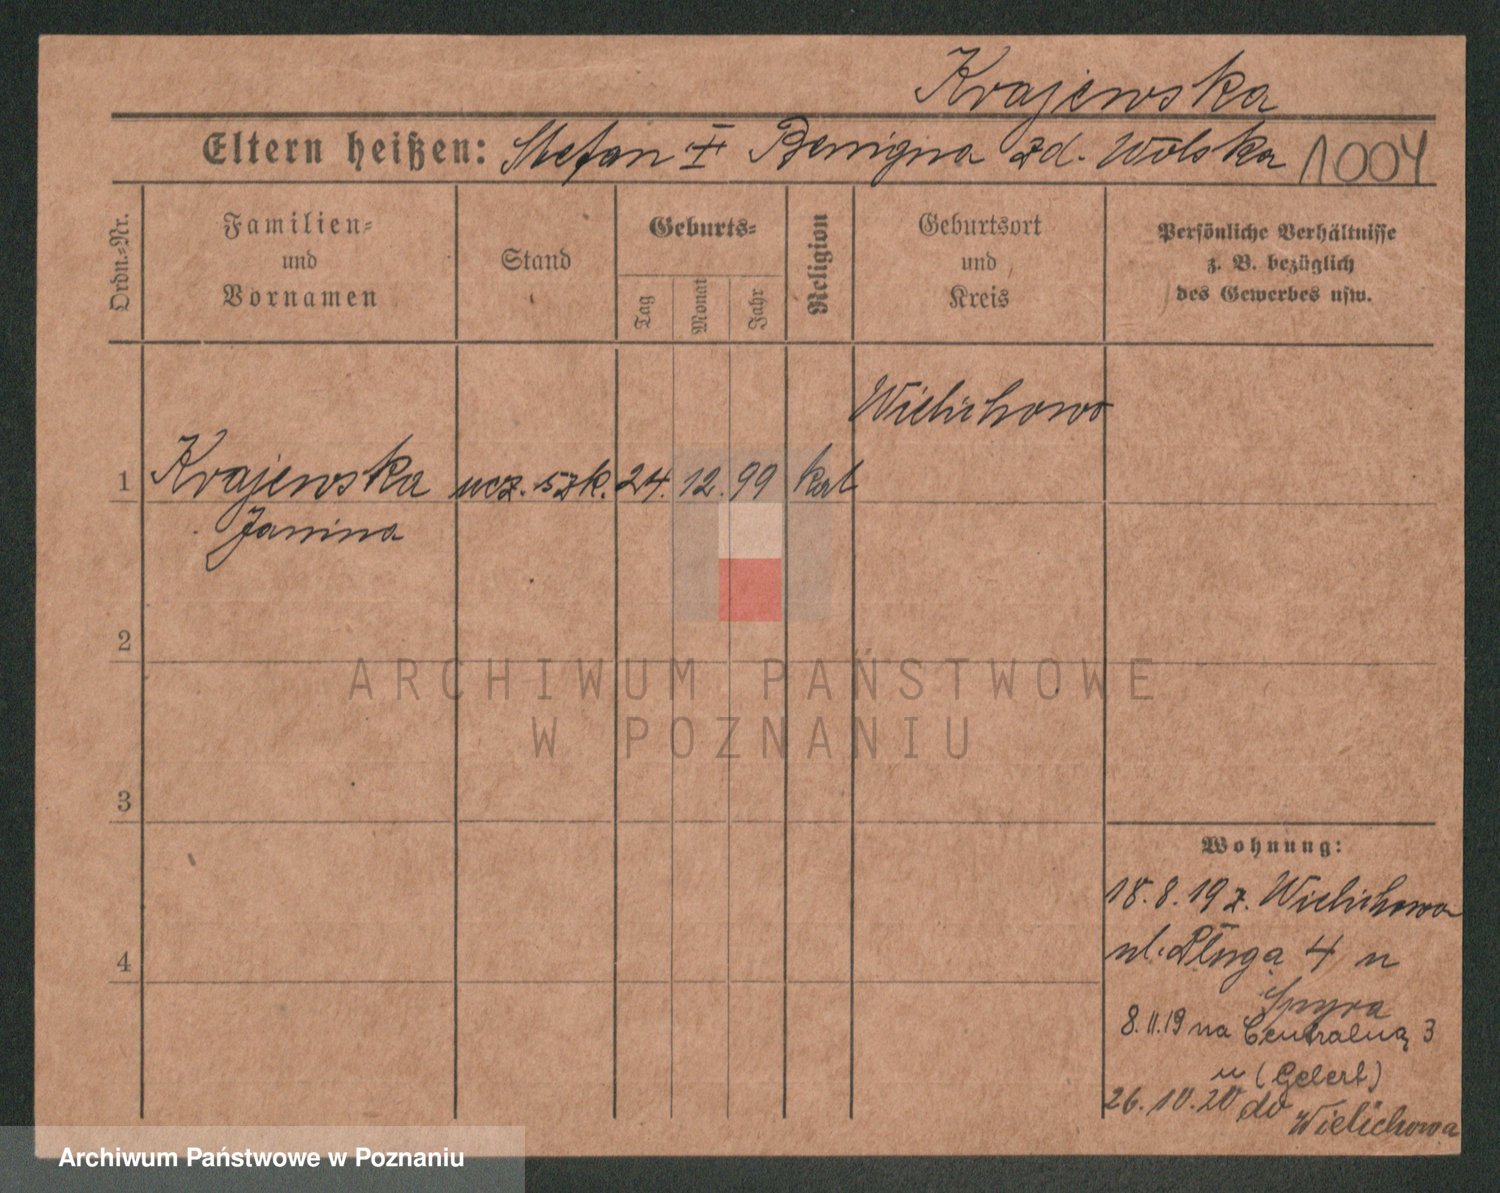 Krajewska
Eltern heißen: Stefan I Benigna zd. Wolska 1004
Ordn.-Nr.
Familien- und Vornamen
Stand
Geburts-
Tag
Monat
Jahr
Religion
Geburtsort und Kreis
Persönliche Verhältnisse
z. B. bezüglich
des Gewerbes usw.
Wielichowo
1 Krajewska ucz. szk. 24. 12. 99 kat
Janina
2
ARCHIWUM PAŃSTWOWE
W POZNANIU
3
Wohnung:
18.8.19 z. Wielichowa
ul. Długa 4 u
4
8.11.19 na Centralną 3
u (Gelert)
26.10.20 do Wielichowa
Archiwum Państwowe w Poznaniu